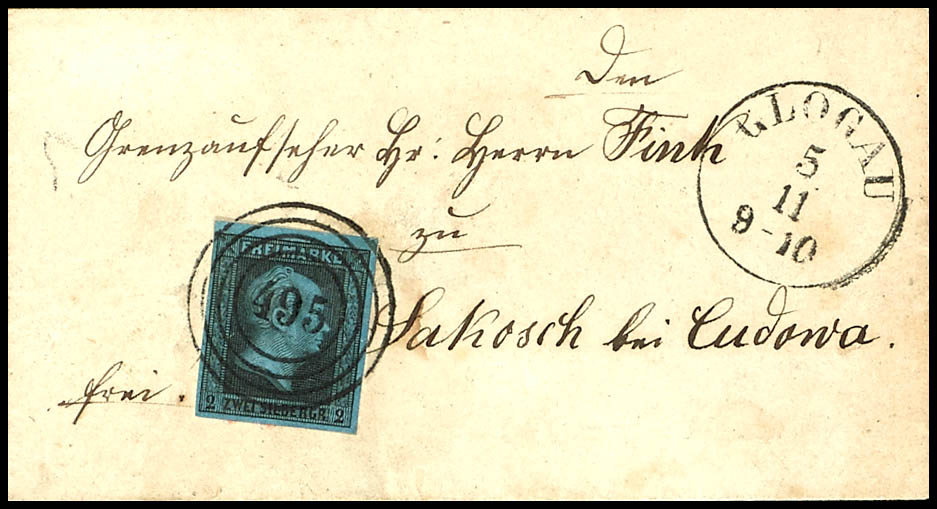 Den
Grenzaufseher Hr: Herrn Fink
zu
Sakosch bei Cudowa.
frei.
GLOGAU
5
11
9-10
FREIMARKE
495
2 ZWEI SILBERGR. 2